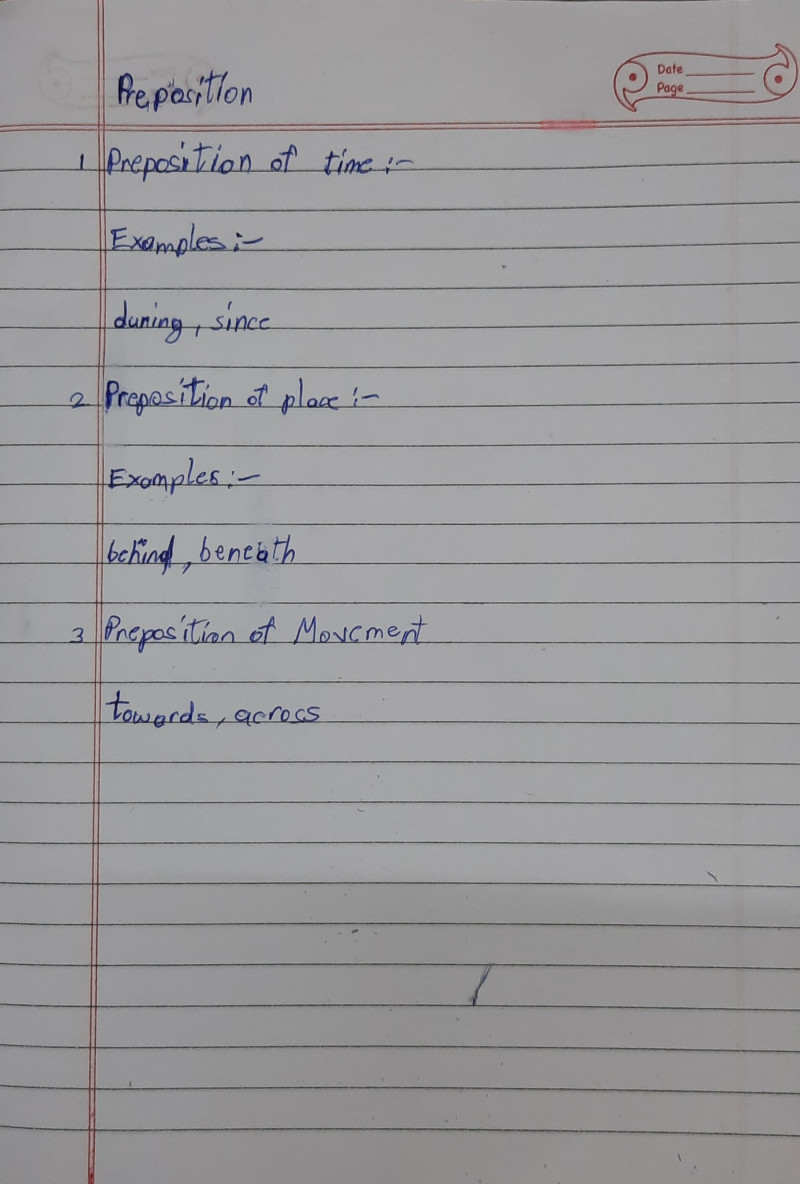 Preposition
Date
Page
1 Preposition of time :-
Examples :-
during, since
2 Preposition of place :-
Examples :-
behind, beneath
3 Preposition of Movement
towards, across